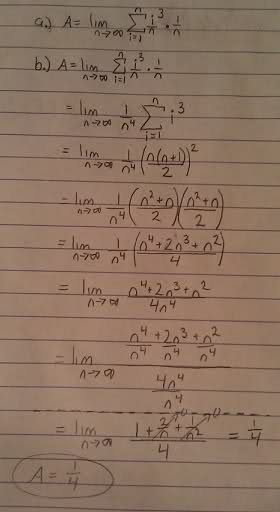 a.) A = lim n→∞ Σ i=1 n i³/n · 1/n
b.) A = lim n→∞ Σ i=1 n i³/n · 1/n
= lim n→∞ 1/n⁴ Σ i=1 n i³
= lim n→∞ 1/n⁴ (n(n+1)/2)²
= lim n→∞ 1/n⁴ (n²+n/2)(n²+n/2)
= lim n→∞ 1/n⁴ (n⁴+2n³+n²/4)
= lim n→∞ n⁴+2n³+n²/4n⁴
= lim n→∞ n⁴/n⁴ + 2n³/n⁴ + n²/n⁴ / 4n⁴/n⁴
= lim n→∞ 1 + 2/n→0 + 1/n²→0 / 4 = 1/4
A = 1/4